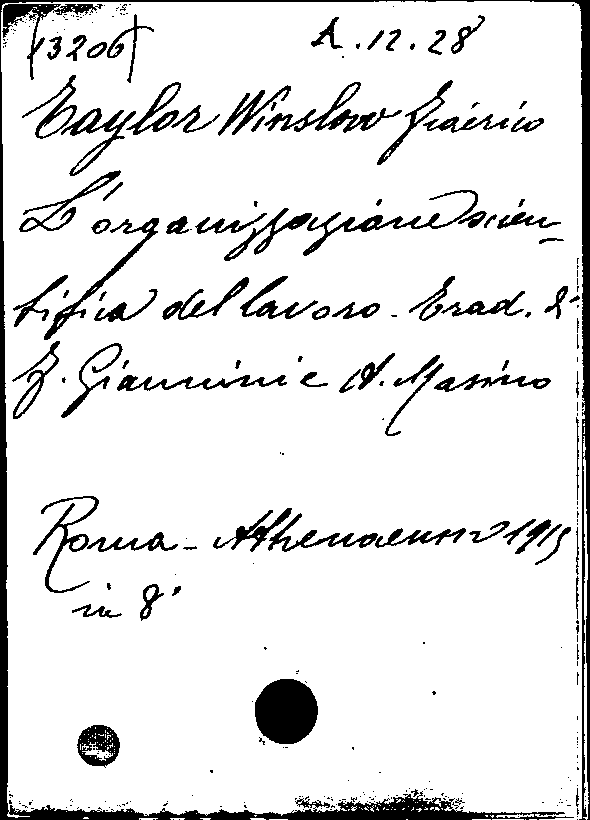 (13206) A.12.28
Taylor Winslow Federico
L'organizzazione scien-
tifica del lavoro - Trad. di
F. Giannini e A. Masino
Roma - Athenaeum 1915
in 8°